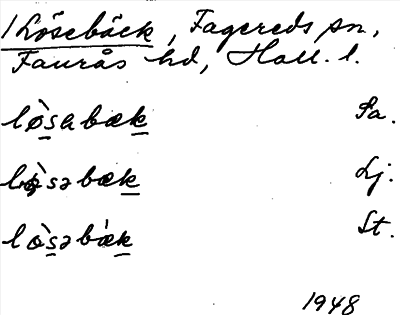 / Lösebäck, Fagereds sn,
Faurås hd, Hall. l.
lø̀sabæk Sa.
lø̀səbæk Lj.
lø̀səbæ̀k St.
1948